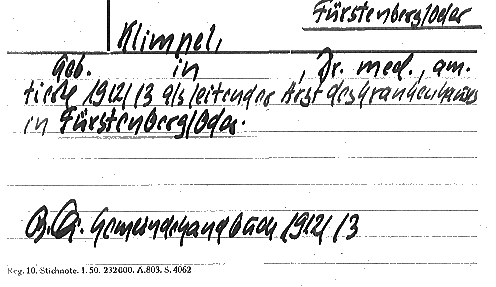 Fürstenberg/Oder
Klimpel,
geb. in , Dr. med., am.
tierte 1912/13 als leitender Arzt des Krankenhauses
in Fürstenberg/Oder.
Gemeindehandbuch 1912/13
Reg. 10. Stichnote. 1. 50. 232000. A.803. S. 4062